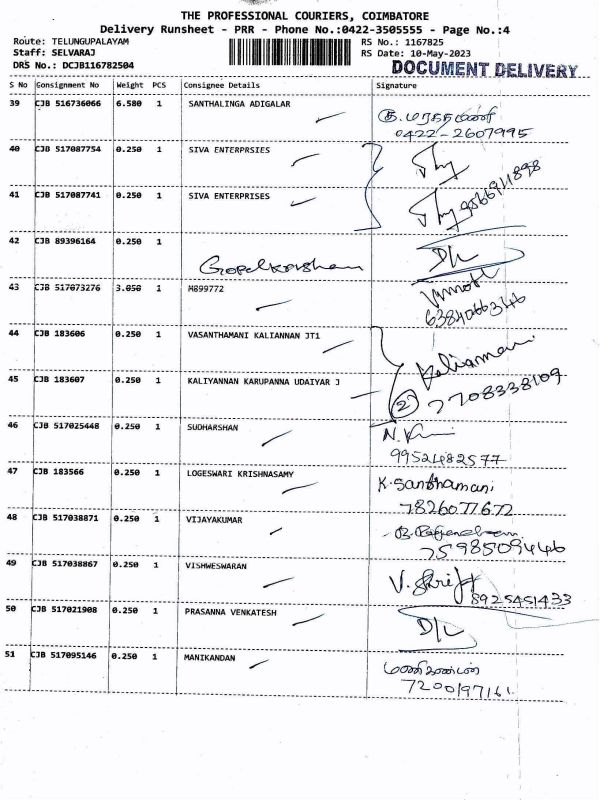 THE PROFESSIONAL COURIERS, COIMBATORE
Delivery Runsheet - PRR - Phone No.:0422-3505555 - Page No.:4
Route: TELUNGUPALAYAM RS No.: 1167825
Staff: SELVARAJ RS Date: 10-May-2023
DRS No.: DCJB116782504 DOCUMENT DELIVERY
S No Consignment No Weight PCS Consignee Details Signature
39 CJB 516736066 6.580 1 SANTHALINGA ADIGALAR
0422-2607995
40 CJB 517087754 0.250 1 SIVA ENTERPRSIES
41 CJB 517087741 0.250 1 SIVA ENTERPRISES
9566911898
42 CJB 89396164 0.250 1 D/L
43 CJB 517073276 3.050 1 M899772
6384066346
44 CJB 183606 0.250 1 VASANTHAMANI KALIANNAN JT1
Kaliamani
45 CJB 183607 0.250 1 KALIYANNAN KARUPANNA UDAIYAR J
2 7708338109
46 CJB 517025448 0.250 1 SUDHARSHAN
9952482577
47 CJB 183566 0.250 1 LOGESWARI KRISHNASAMY K. Santhamani
7826077672
48 CJB 517038871 0.250 1 VIJAYAKUMAR
7598509446
49 CJB 517038867 0.250 1 VISHWESWARAN
8925451433
50 CJB 517021908 0.250 1 PRASANNA VENKATESH D/L
51 CJB 517095146 0.250 1 MANIKANDAN மணிகண்டன்
7200197161